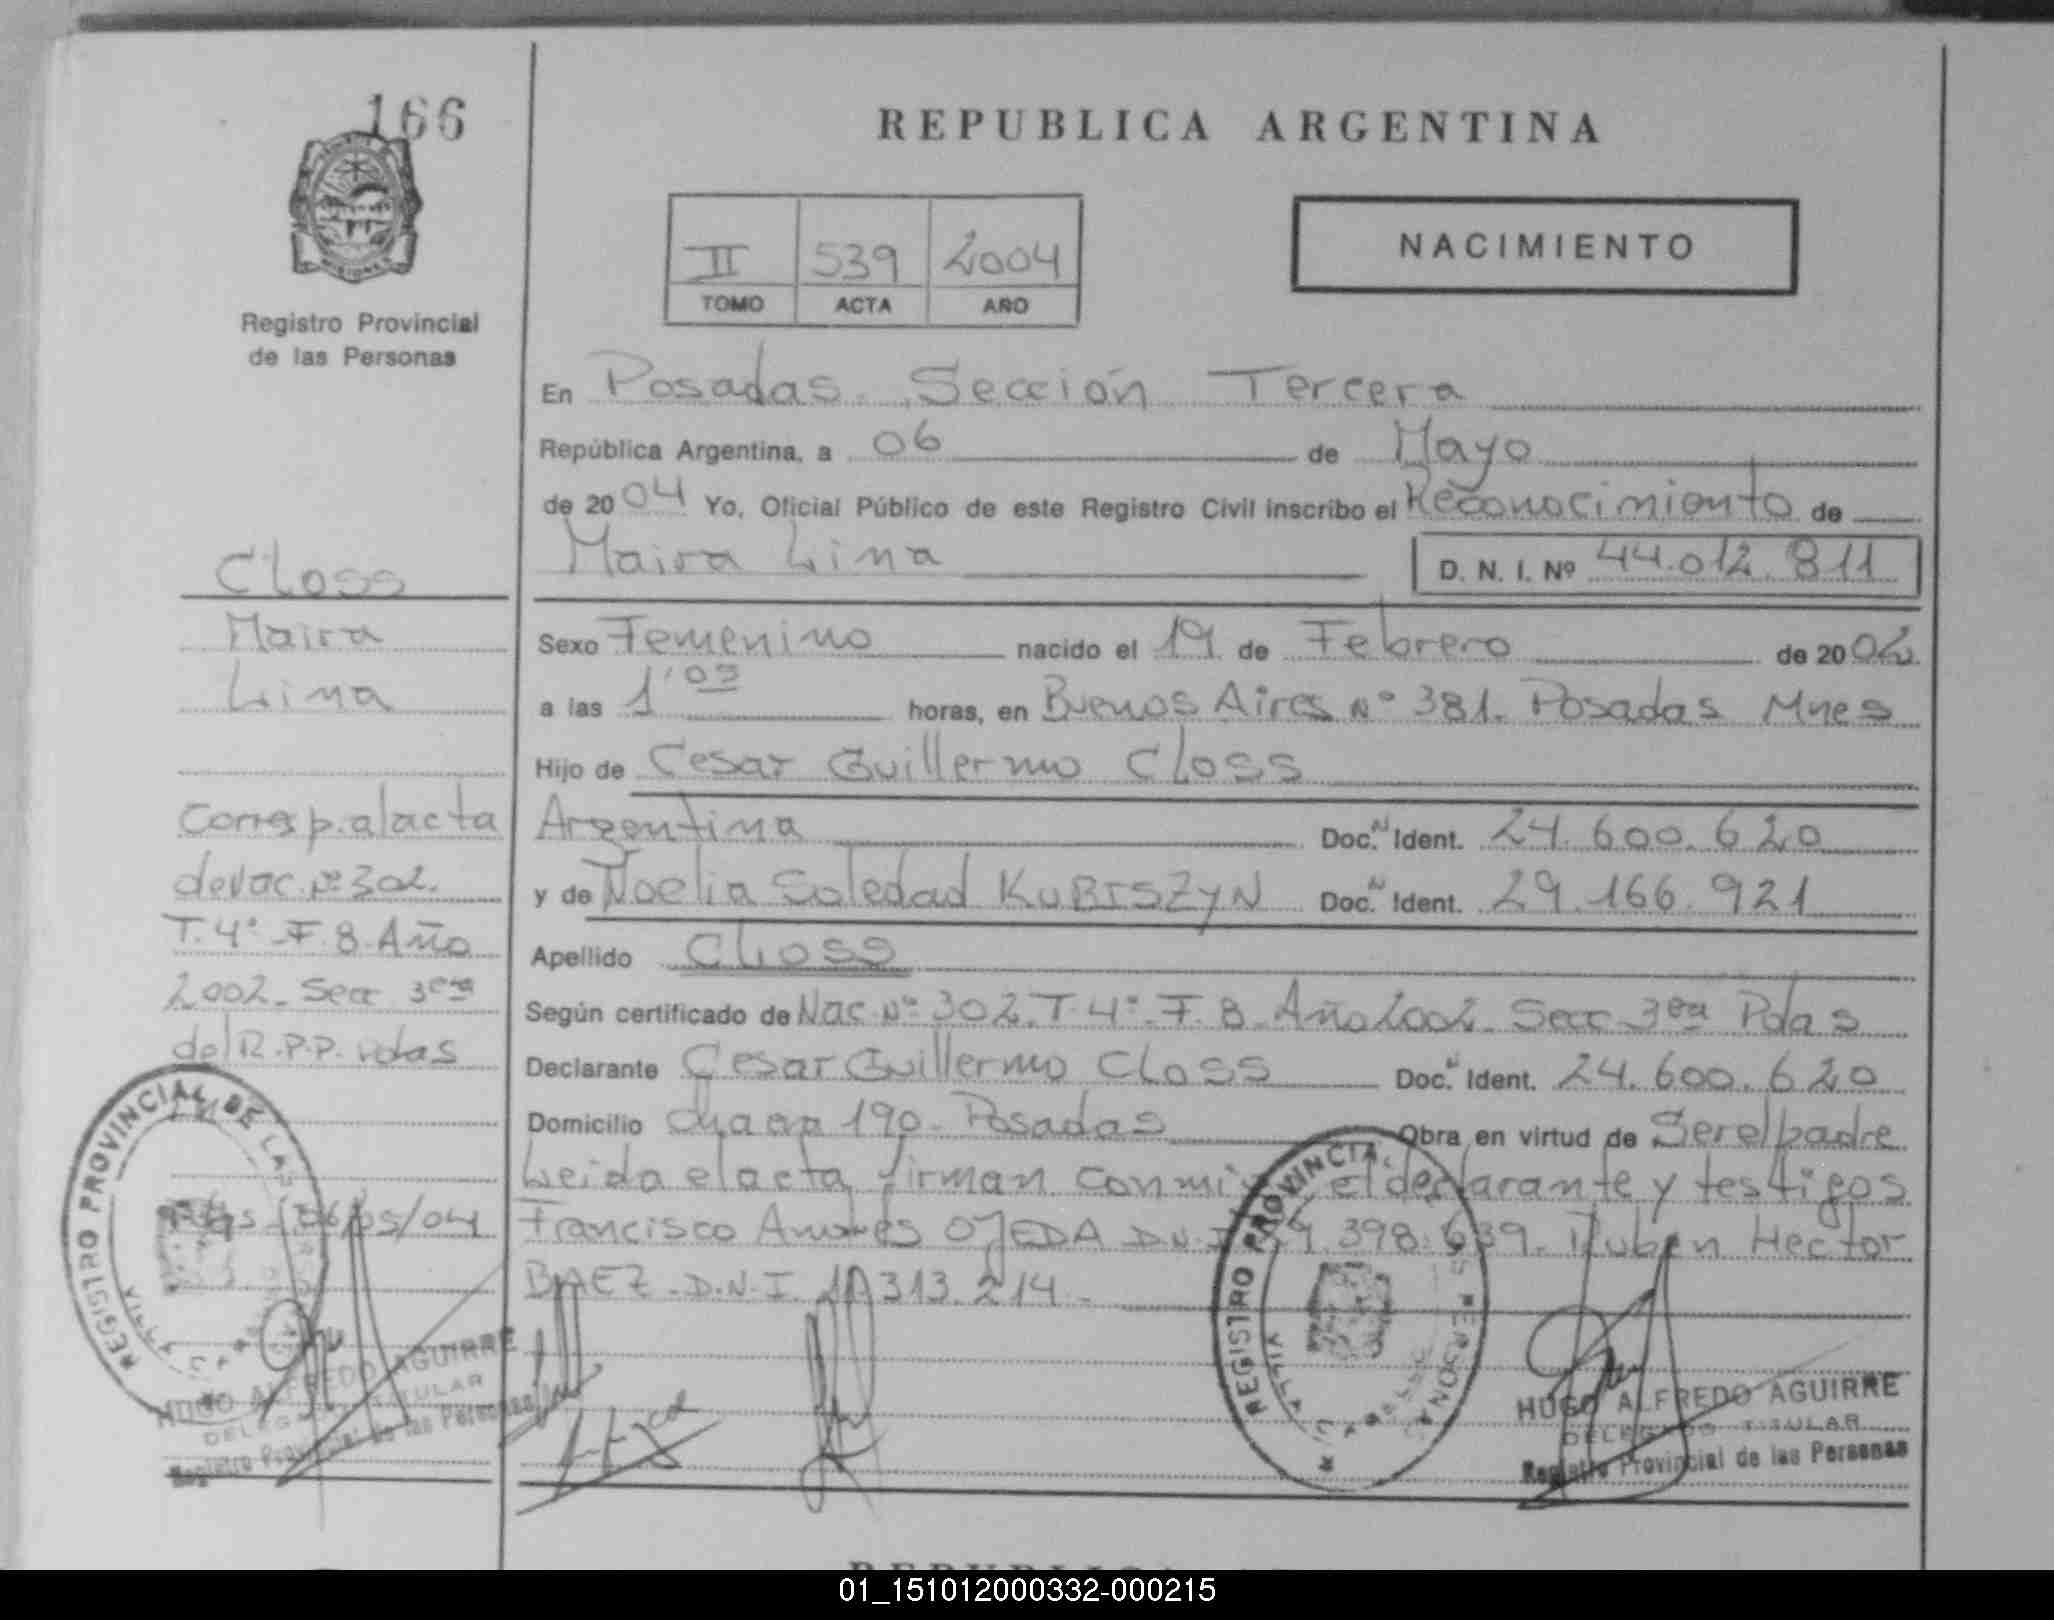 166
REPUBLICA ARGENTINA
MISIONES
Registro Provincial
de las Personas
II 539 2004
TOMO ACTA AÑO
NACIMIENTO
En Posadas. Sección Tercera
República Argentina, a 06 de Mayo
de 2004 Yo, Oficial Público de este Registro Civil inscribo el Reconocimiento de
Maira Lina D. N. I. Nº 44.012.811
Sexo Femenino nacido el 19 de Febrero de 2002
a las 1 horas, en Buenos Aires Nº 381. Posadas Mnes
Hijo de Cesar Guillermo Closs
Argentina Doc. N Ident. 24.600.620
y de Noelia Soledad KUBISZYN Doc. N Ident. 29.166.921
Apellido Closs
Según certificado de Nac. Nº 302. T. 4º. F. 8. Año 2002. Secc 3era Pdas
Declarante Cesar Guillermo Closs Doc. N Ident. 24.600.620
Domicilio Chacra 190. Posadas Obra en virtud de Ser el padre
Leida el acta firman conmigo el declarante y testigos
Francisco OJEDA D.N.I. 398.639. Ruben Hector
BAEZ. D.N.I. 313.214.
Closs
Maira
Lina
Corresp. al acta
de Nac. Nº 302.
T. 4º. F. 8. Año
2002. Secc 3era
del R.P.P. Pdas
Pdas. 06/05/04
REGISTRO PROVINCIAL DE LAS PERSONAS
HUGO ALFREDO AGUIRRE
DELEGADO TITULAR
Registro Provincial de las Personas
REGISTRO PROVINCIAL PERSONAS
HUGO ALFREDO AGUIRRE
DELEGADO TITULAR
Registro Provincial de las Personas
01_151012000332-000215